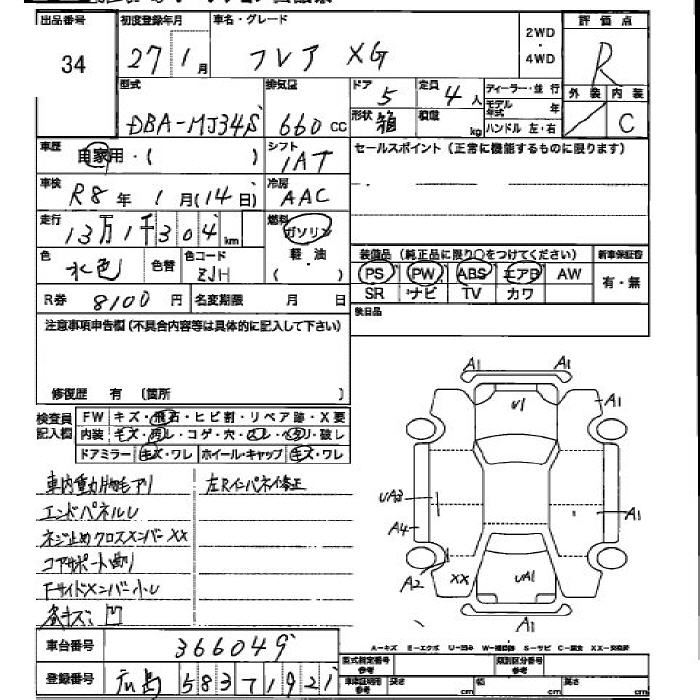 出品番号 初度登録年月 車名・グレード 2WD・4WD 評価点
34 27 1月 フレア XG R
型式 排気量 ドア 定員 ディーラー・並行 外装 内装
DBA-MJ34S 660 cc 5 4人 モデル年式 年 C
形状 箱 積載 kg ハンドル 左・右
車歴 自家用・( ) シフト 1AT セールスポイント(正常に機能するものに限ります)
車検 R8年 1月(14日) 冷房 AAC
走行 13万1千304km 燃料 ガソリン
軽・油
( )
色 水色 色替 色コード ZJH
装備品(純正品に限り○をつけてください) 新車保証書
PS PW ABS エアB AW 有・無
SR ナビ TV カワ
R券 8100円 名変期限 月 日
後日品
注意事項申告欄(不具合内容等は具体的に記入して下さい)
修復歴 有 〔箇所 〕
検査員記入欄 FW キズ・飛石・ヒビ割・リペア跡・X要
内装 キズ・汚レ・コゲ・穴・ ・ヘタリ・破レ
ドアミラー キズ・ワレ ホイール・キャップ キズ・ワレ
車内 アリ 左Rインパネ 修正
エンドパネルU
ネジ止めクロスメンバーXX
コアサポート曲り
FサイドメンバーハU
キズ 凹
A1 A1
U1 A1
UA3
A4 A1
A2 XX UA1
A1
A-キズ E-エクボ U-凹み W-補修跡 S-サビ C-腐食 XX-交換済
車台番号 366049
型式指定番号 参考 類別区分番号 参考
登録番号 広島 583 71921
車庫証明用 参考 長さ cm 幅 cm 高さ cm